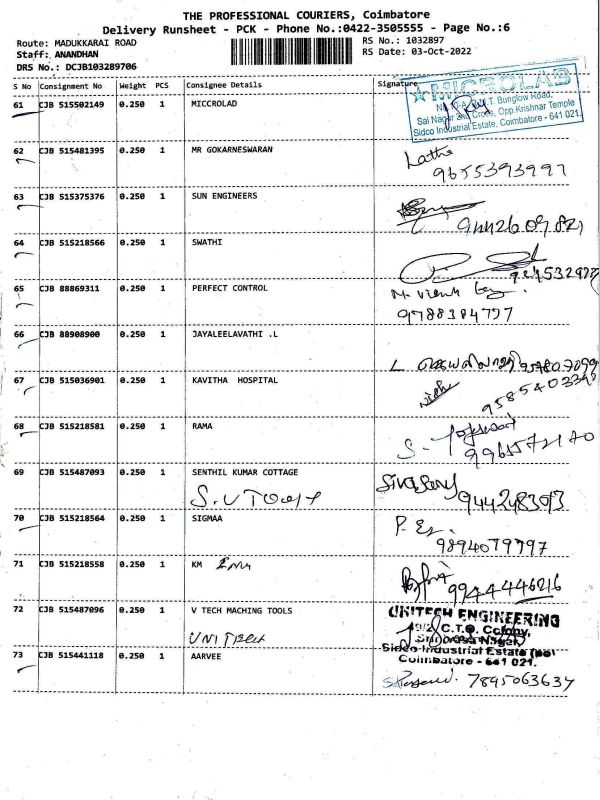 THE PROFESSIONAL COURIERS, Coimbatore
Delivery Runsheet - PCK - Phone No.:0422-3505555 - Page No.:6
Route: MADUKKARAI ROAD
RS No.: 1032897
Staff: ANANDHAN
RS Date: 03-Oct-2022
DRS No.: DCJB103289706
S No Consignment No Weight PCS Consignee Details Signature
61 CJB 515502149 0.250 1 MICCROLAD
MICROLAB
Bunglow Road,
Sai Nagar 2nd Cross, Opp.Krishnar Temple
Sidco Industrial Estate, Coimbatore - 641 021.
62 CJB 515481395 0.250 1 MR GOKARNESWARAN
Latha
9655393997
63 CJB 515375376 0.250 1 SUN ENGINEERS
64 CJB 515218566 0.250 1 SWATHI
65 CJB 88869311 0.250 1 PERFECT CONTROL
9788384777
66 CJB 88908900 0.250 1 JAYALEELAVATHI .L
67 CJB 515036901 0.250 1 KAVITHA HOSPITAL
68 CJB 515218581 0.250 1 RAMA
69 CJB 515487093 0.250 1 SENTHIL KUMAR COTTAGE
70 CJB 515218564 0.250 1 SIGMAA
9894079797
71 CJB 515218558 0.250 1 KM
9944446216
72 CJB 515487096 0.250 1 V TECH MACHING TOOLS
UNITECH ENGINEERING
C.T.O. Colony,
Srinivasa Nagar,
Sidco Industrial Estate (po)
Coimbatore - 641 021.
UNITECH
73 CJB 515441118 0.250 1 AARVEE
7895063637